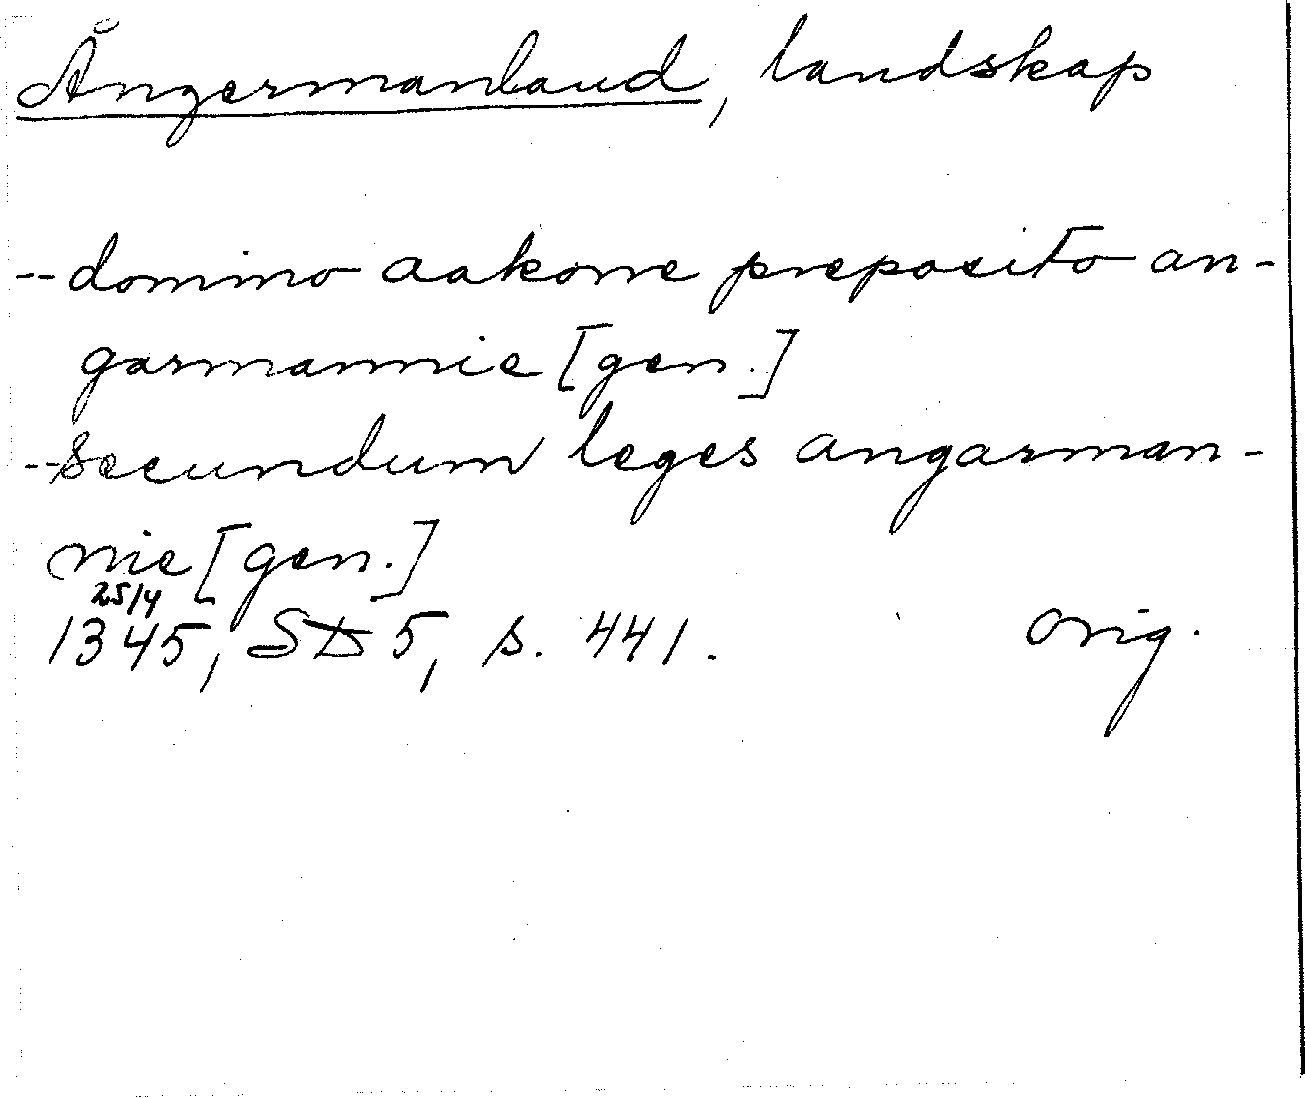 Ångermanland, landskap
--domino aakone preposito an-
garmannie [gen.]
--secundum leges angarman-
nie [gen.]
25/4
1345, SD 5, s. 441. Orig.